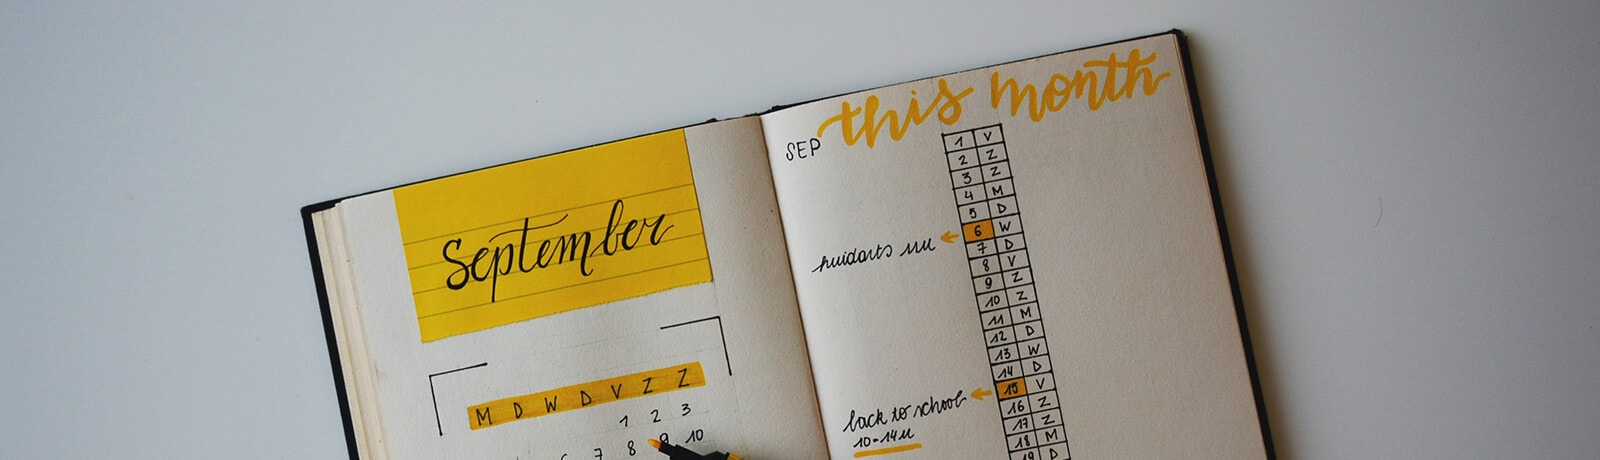 September
M D W D V Z Z
1 2 3
6 7 8 9 10
this month
SEP
1 V
2 Z
3 Z
4 M
5 D
6 W
7 D
8 V
9 Z
10 Z
11 M
12 D
13 W
14 D
15 V
16 Z
17 Z
18 M
19 D
huidarts
back to school
10-14u